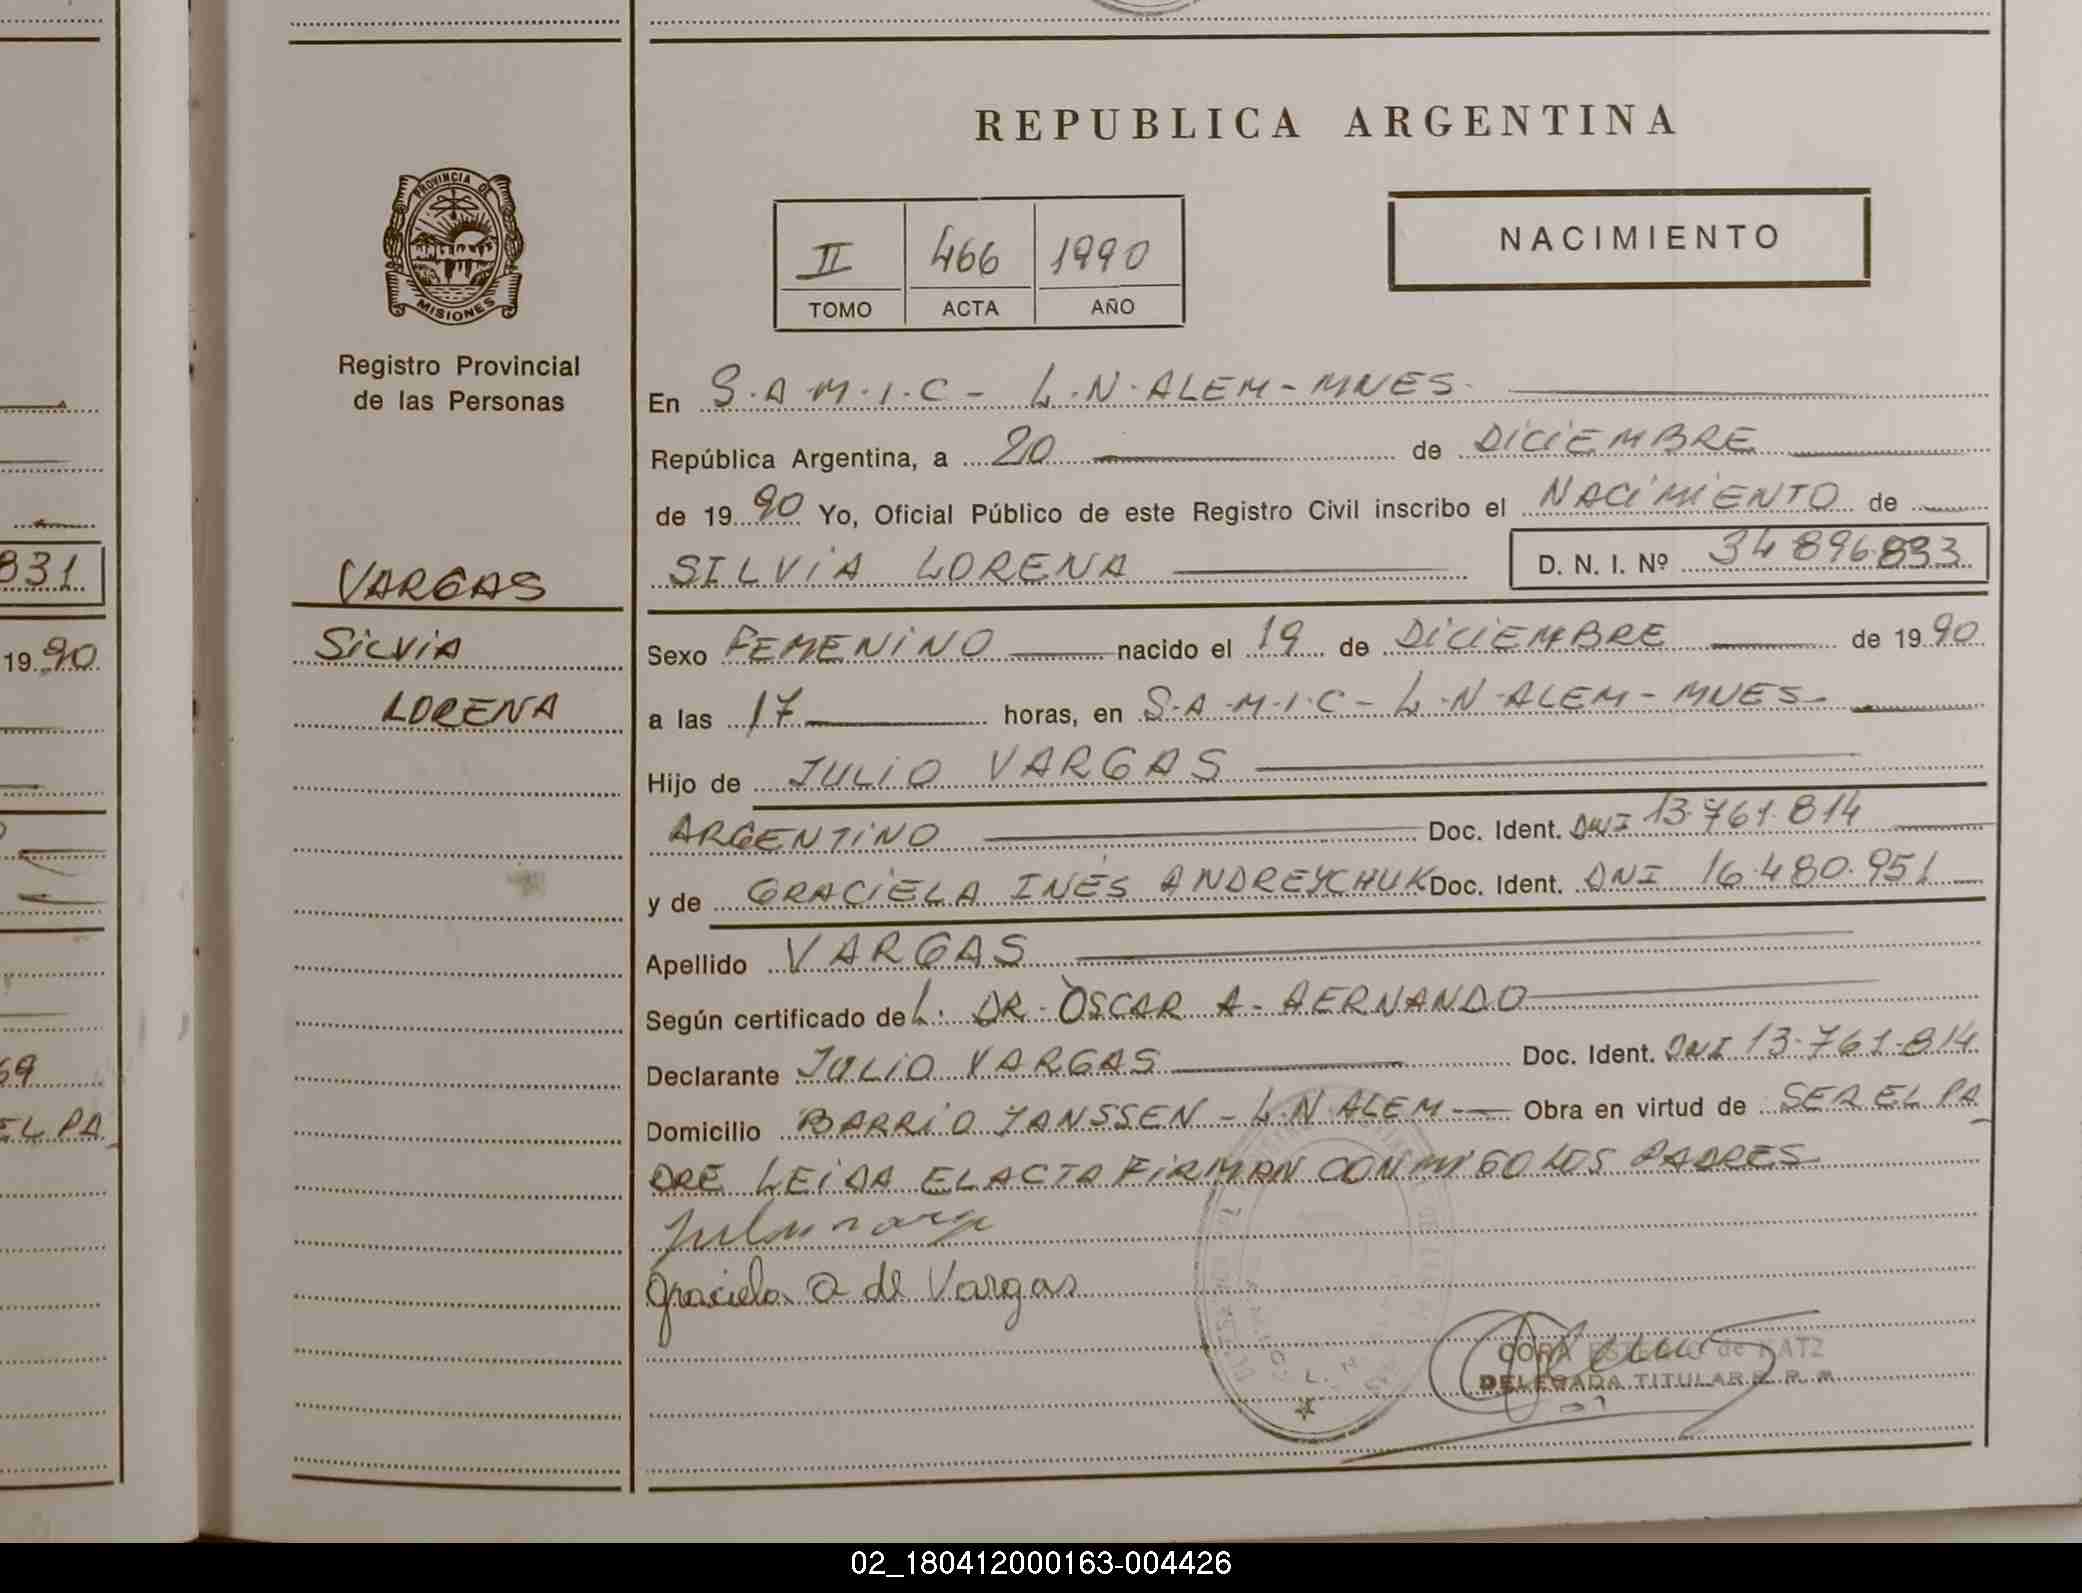 REPUBLICA ARGENTINA
PROVINCIA DE
MISIONES
Registro Provincial
de las Personas
VARGAS
SILVIA
LORENA
II 466 1990
TOMO ACTA AÑO
NACIMIENTO
En S.A.M.I.C - L.N.ALEM - MNES.
República Argentina, a 20 de DICIEMBRE
de 1990 Yo, Oficial Público de este Registro Civil inscribo el NACIMIENTO de
SILVIA LORENA D. N. I. Nº 34896.893
Sexo FEMENINO nacido el 19 de DICIEMBRE de 1990
a las 17 horas, en S.A.M.I.C - L.N.ALEM - MNES
Hijo de JULIO VARGAS
ARGENTINO Doc. Ident. DNI 13.761.814
y de GRACIELA INÉS ANDREYCHUK Doc. Ident. DNI 16.480.951
Apellido VARGAS
Según certificado de L. DR. OSCAR A. AERNANDO
Declarante JULIO VARGAS Doc. Ident. DNI 13.761.814
Domicilio BARRIO YANSSEN - L.N.ALEM - Obra en virtud de SER EL PA
DRE LEIDA EL ACTA FIRMAN CONMIGO LOS PADRES
Graciela a de Vargas
CORA de KATZ
DELEGADA TITULAR R. P. P.
831
1990
69
EL PA
02_180412000163-004426